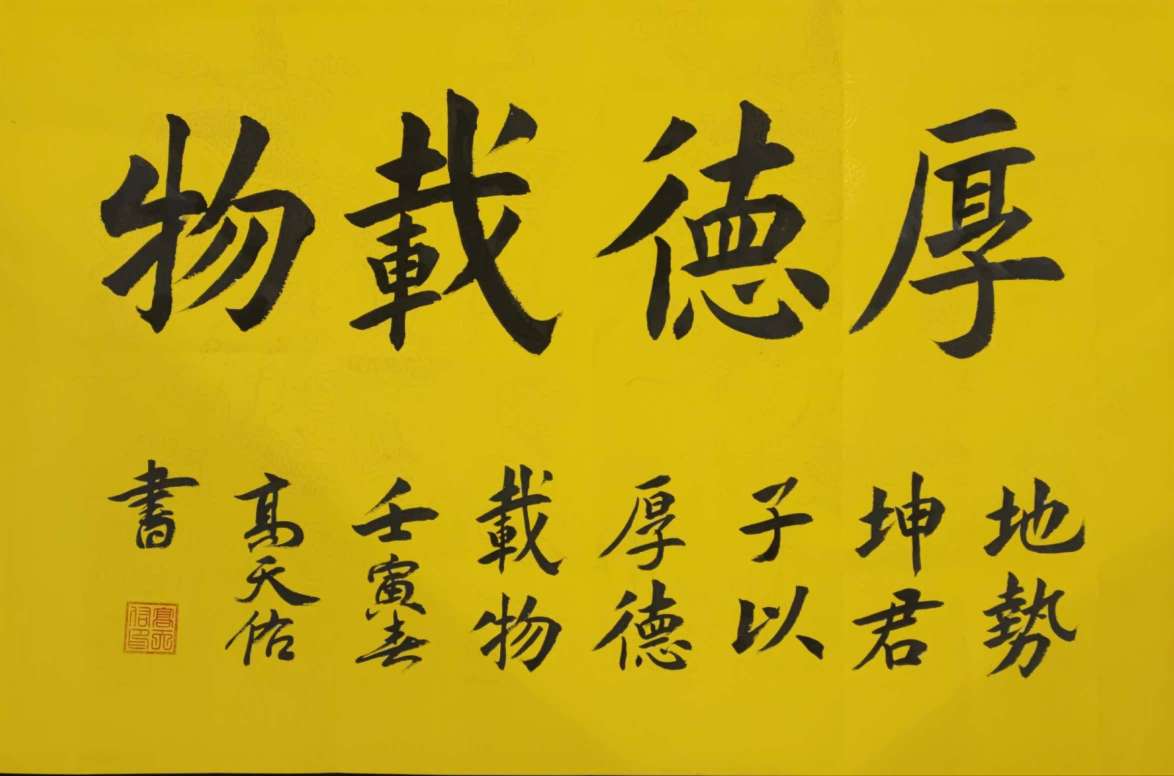 厚德載物
地勢
坤君
子以
厚德
載物
壬寅春
高天佑
書